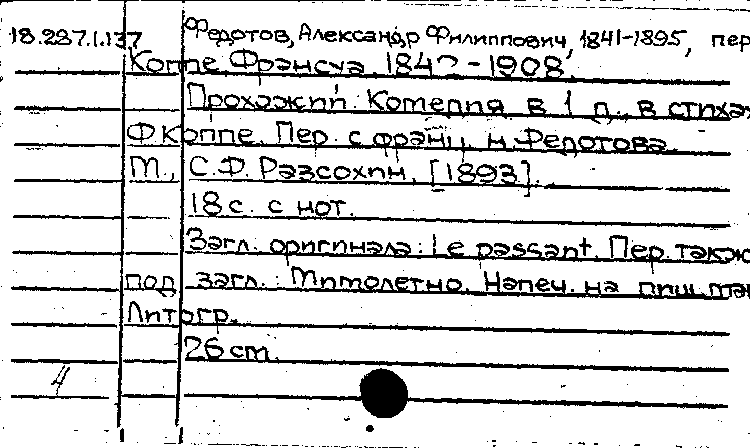 18.287.1.137 Федотов, Александр Филиппович, 1841-1895, пер
Коппе, Франсуа, 1842-1908.
Прохожий: Комедия в 1 д., в стихах
Ф. Коппе. Пер. с франц. Федотова.
М., С.Ф. Рассохин, [1893].
18 с. с нот.
Загл. оригинала: Le passant. Пер. также
под загл.: Мимолетно. Напеч. на пиш. маш
Литогр.
26 cm.
4